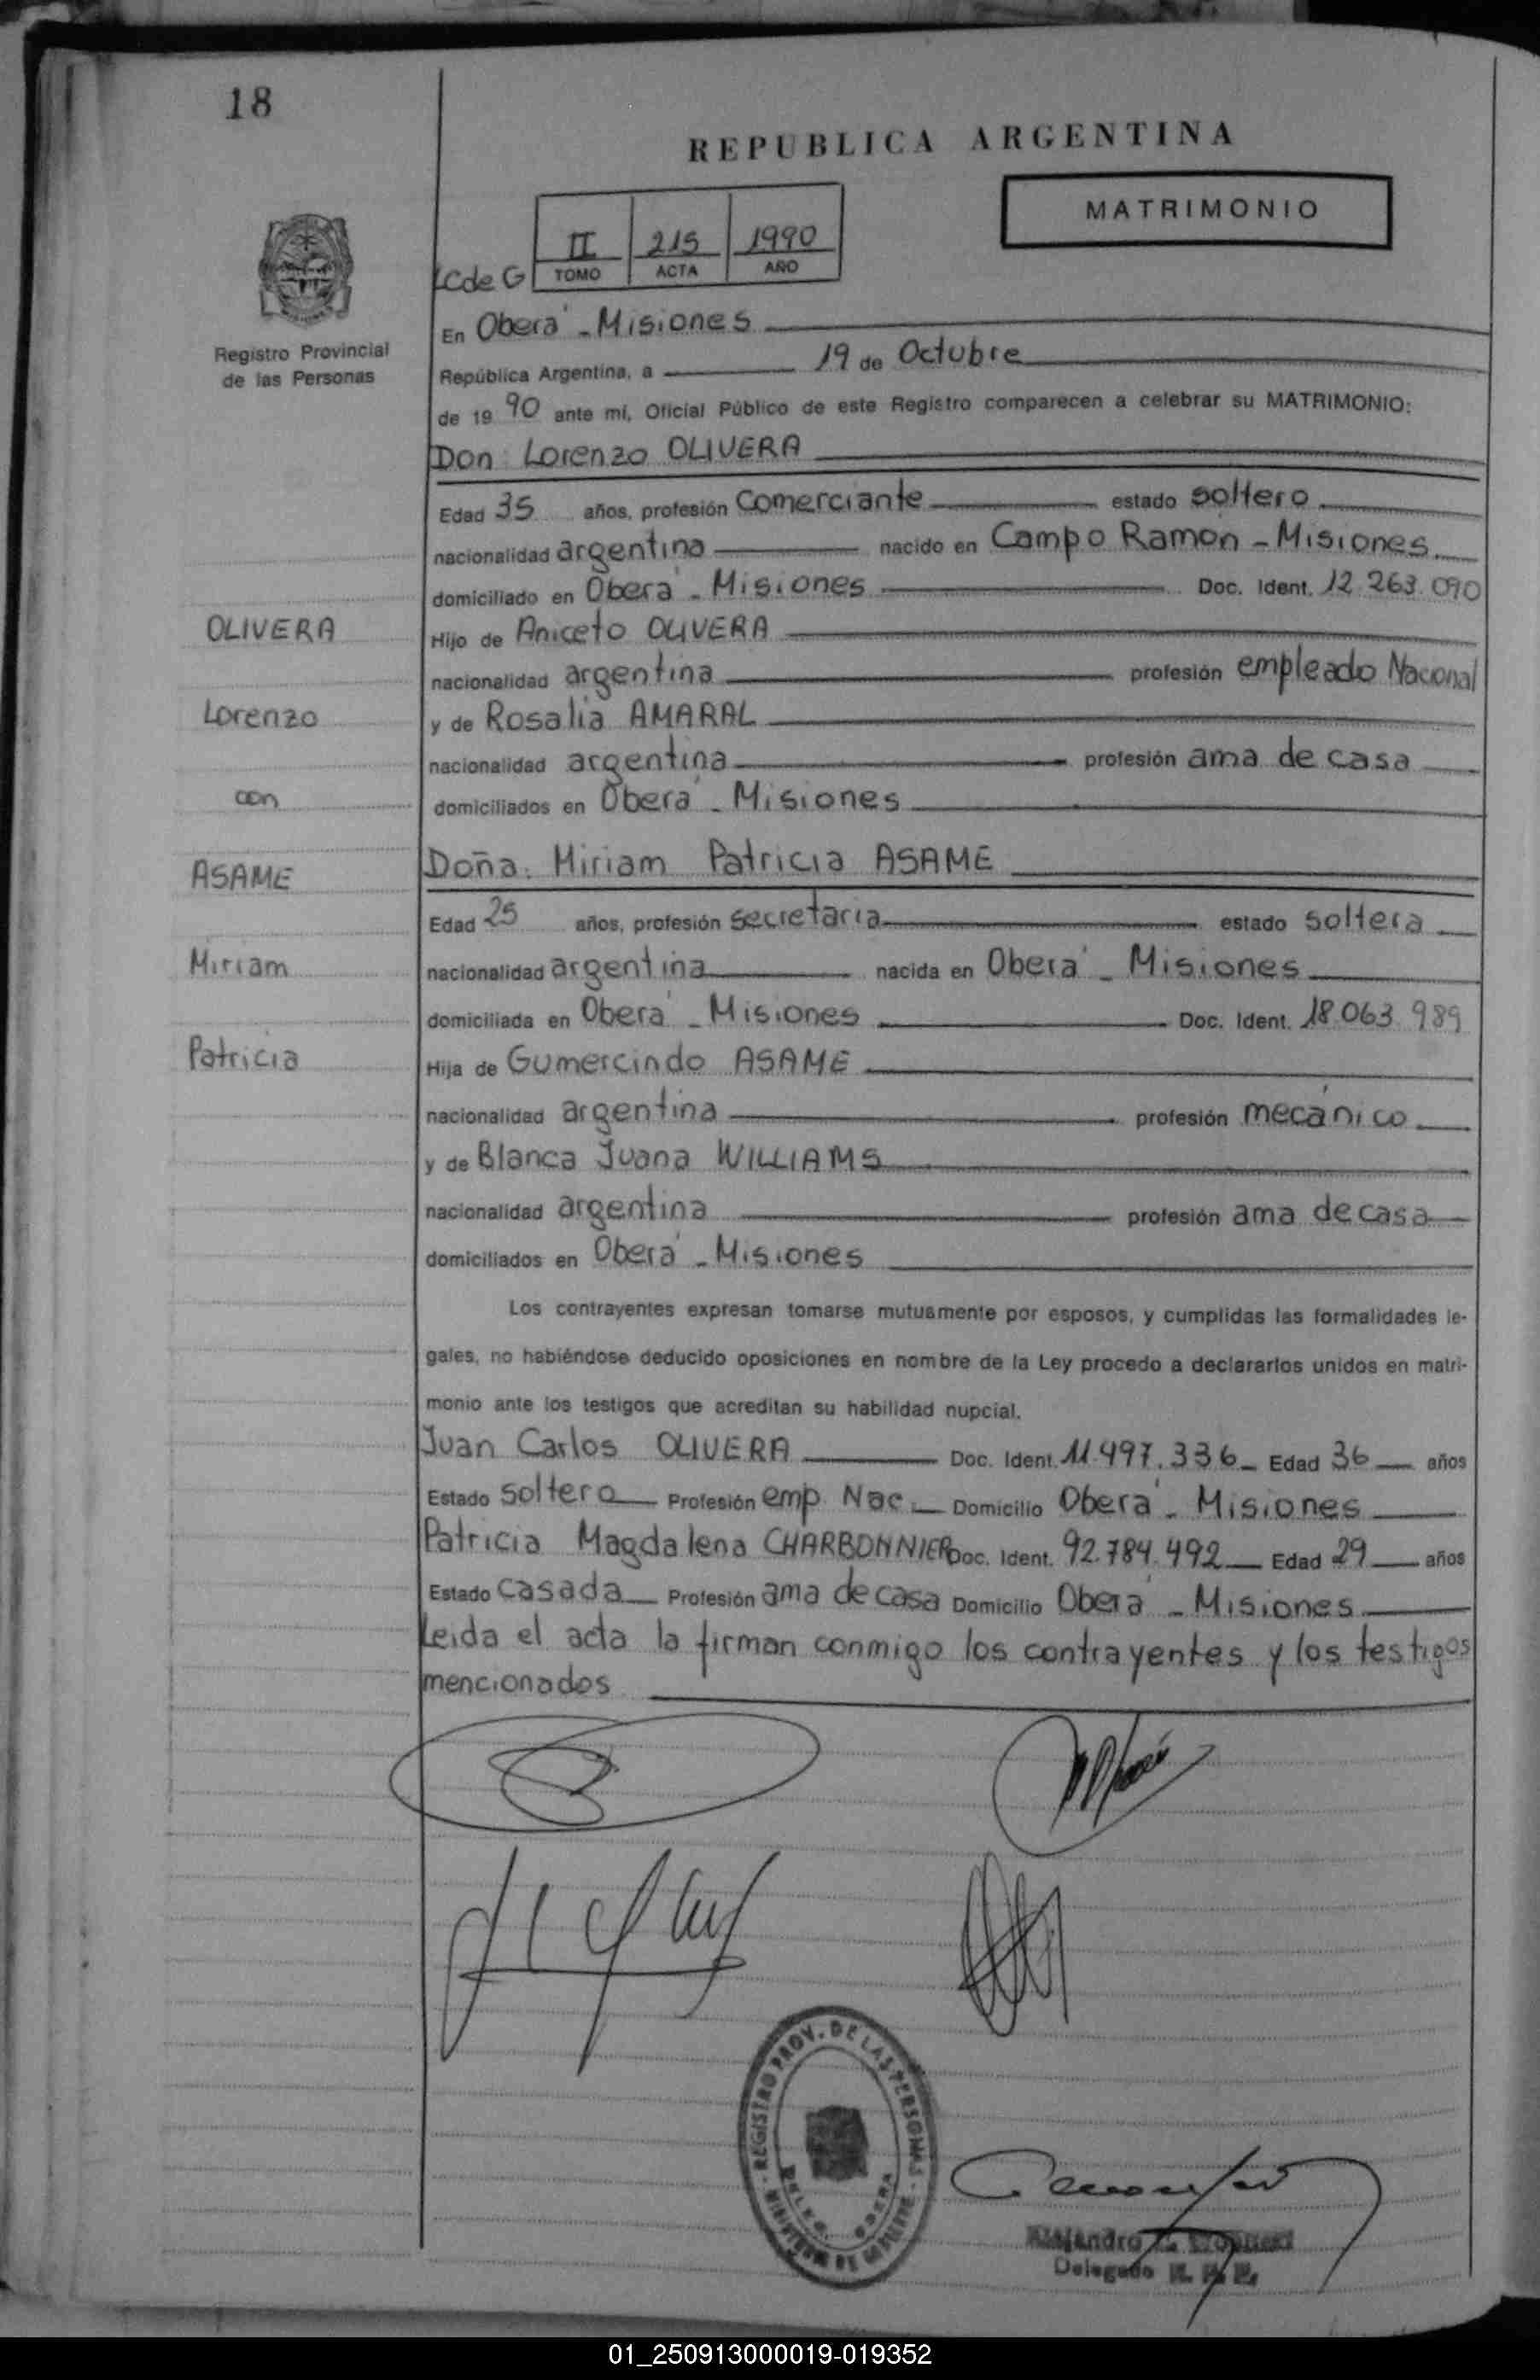 18
REPUBLICA ARGENTINA
MATRIMONIO
II 215 1990
LC de G TOMO ACTA AÑO
Registro Provincial
de las Personas
En Oberá - Misiones
República Argentina, a 19 de Octubre
de 19 90 ante mí, Oficial Público de este Registro comparecen a celebrar su MATRIMONIO:
Don: Lorenzo OLIVERA
Edad 35 años, profesión comerciante estado soltero
nacionalidad argentina nacido en Campo Ramón - Misiones
domiciliado en Oberá - Misiones Doc. Ident. 12.263.090
OLIVERA
Hijo de Aniceto OLIVERA
nacionalidad argentina profesión empleado Nacional
Lorenzo
y de Rosalia AMARAL
nacionalidad argentina profesión ama de casa
con
domiciliados en Oberá - Misiones
ASAME
Doña: Miriam Patricia ASAME
Edad 25 años, profesión secretaria estado soltera
Miriam
nacionalidad argentina nacida en Oberá - Misiones
domiciliada en Oberá - Misiones Doc. Ident. 18.063.989
Patricia
Hija de Gumercindo ASAME
nacionalidad argentina profesión mecánico
y de Blanca Juana WILLIAMS
nacionalidad argentina profesión ama de casa
domiciliados en Oberá - Misiones
Los contrayentes expresan tomarse mutuamente por esposos, y cumplidas las formalidades le-
gales, no habiéndose deducido oposiciones en nombre de la Ley procedo a declararlos unidos en matri-
monio ante los testigos que acreditan su habilidad nupcial.
Juan Carlos OLIVERA Doc. Ident. 11.497.336 Edad 36 años
Estado soltero Profesión emp. Nac. Domicilio Oberá - Misiones
Patricia Magdalena CHARBONNIER Doc. Ident. 92.784.492 Edad 29 años
Estado casada Profesión ama de casa Domicilio Oberá - Misiones
Leida el acta la firman conmigo los contrayentes y los testigos
mencionados
REGISTRO PROV. DE LAS PERSONAS
OBERA
Alejandro
Delegado
01_250913000019-019352